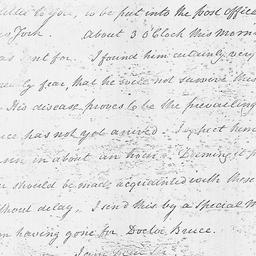 letter to you, to be put into the Post Office
York. About 3 O'Clock this morn
as sent for. I found him certainly very
fear, that he will not survive this
His disease proves to be the prevailing
has not yet arrived. I expect him
in about an hour. Deeming it
should be made acquainted with these
without delay, I send this by a special
having gone for Doctor Bruce.
I am